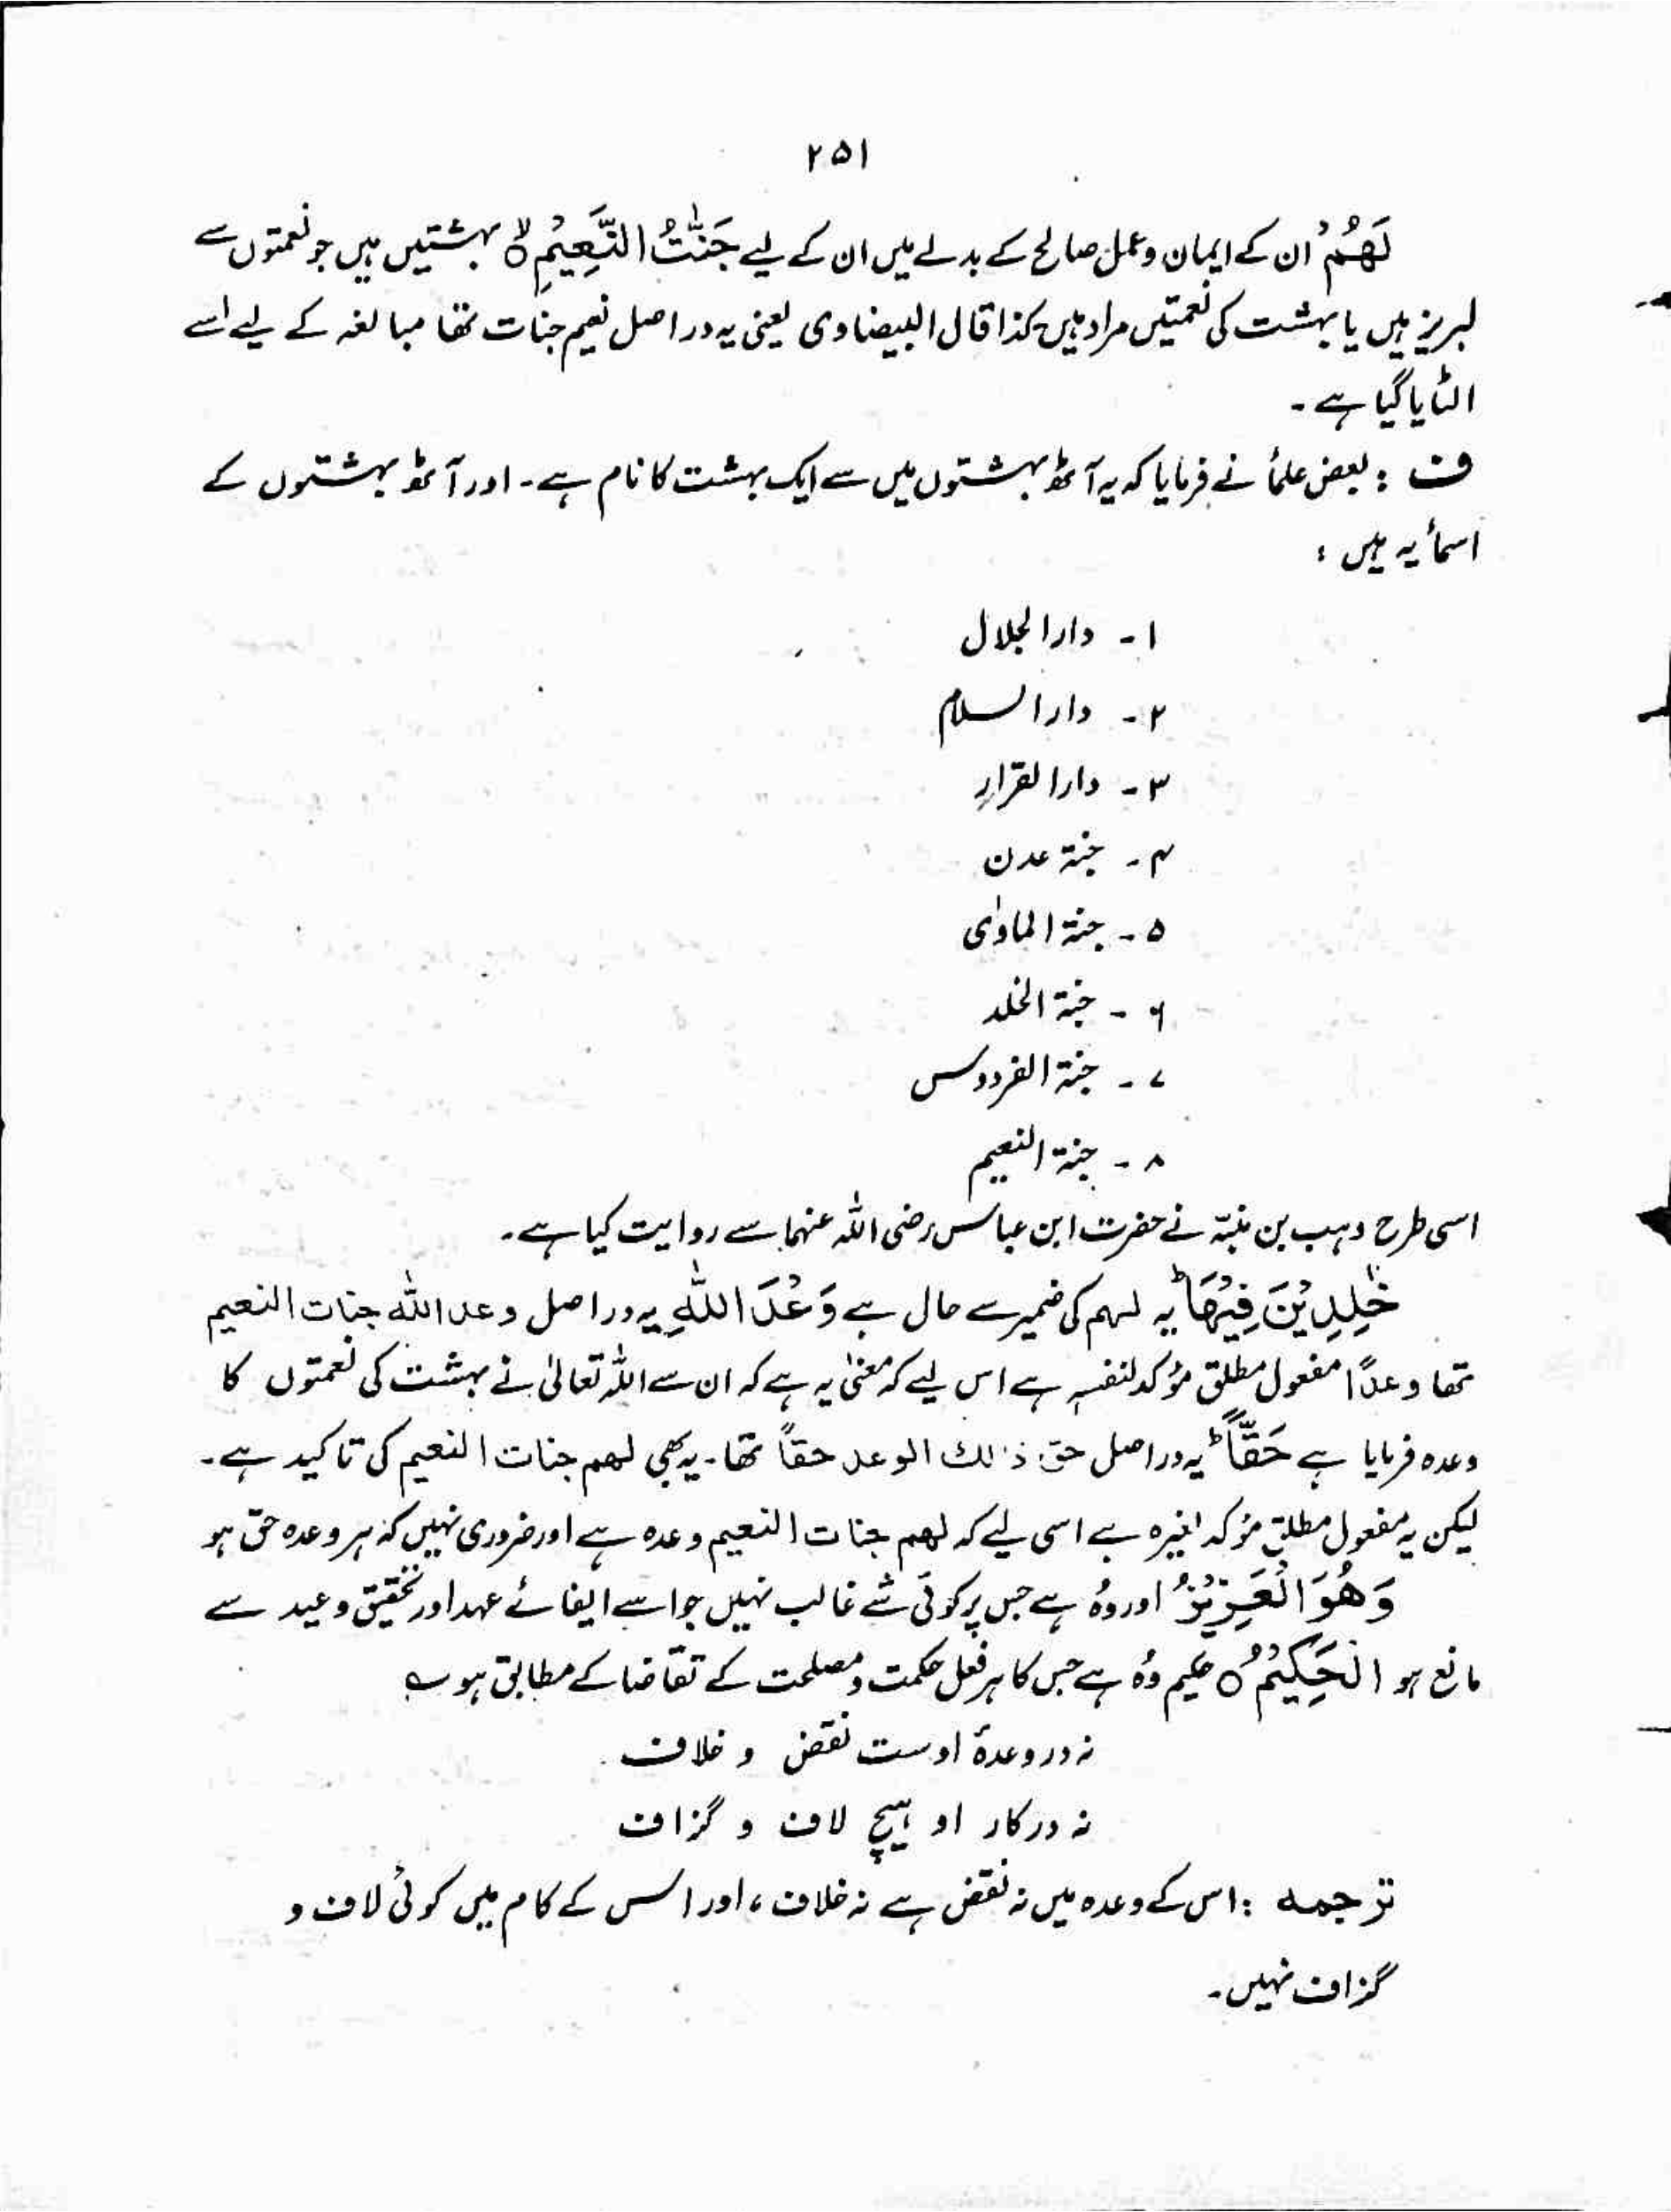 ۲۵۱
لَهُمْ ان کے ایمان و عمل صالح کے بدلے میں ان کے لیے جَنّٰتُ النَّعِيْمِ ۙ○ بہشتیں ہیں جو نعمتوں سے
لبریز ہیں یا بہشت کی نعمتیں مراد ہیں کذا قال البیضاوی یعنی یہ دراصل نعیم جنات تھا مبالغہ کے لیے اسے
الٹایا گیا ہے۔
ف : بعض علمأ نے فرمایا کہ یہ آٹھ بہشتوں میں سے ایک بہشت کا نام ہے۔ اور آٹھ بہشتوں کے
اسمأ یہ ہیں :
۱۔ دارالجلال
۲۔ دارالسلام
۳۔ دارالقرار
۴۔ جنۃ عدن
۵۔ جنۃ الماوٰی
۶۔ جنۃ الخلد
۷۔ جنۃ الفردوس
۸۔ جنۃ النعیم
اسی طرح وہب بن منبّہ نے حضرت ابن عباس رضی اللہ عنہما سے روایت کیا ہے۔
خٰلِدِيْنَ فِيْهَا ؕ یہ لہم کی ضمیر سے حال ہے وَعْدَ اللّٰهِ یہ دراصل وعد اللہ جنات النعیم
تھا وعدًا مفعول مطلق مؤکد لنفسہ ہے اس لیے کہ معنٰی یہ ہے کہ ان سے اللہ تعالیٰ نے بہشت کی نعمتوں کا
وعدہ فرمایا ہے حَقًّا ؕ یہ دراصل حق ذٰلك الوعد حقاً تھا۔ یہ بھی لهم جنات النعيم کی تاکید ہے۔
لیکن یہ مفعول مطلق مؤکد لغیرہ ہے اسی لیے کہ لهم جنات النعيم وعدہ ہے اور ضروری نہیں کہ ہر وعدہ حق ہو
وَهُوَ الْعَزِيْزُ اور وُہ ہے جس پر کوئی شے غالب نہیں جو اسے ایفائے عہد اور تحقیق وعید سے
مانع ہو الْحَكِيْمُ ○ حکیم وُہ ہے جس کا ہر فعل حکمت و مصلحت کے تقاضا کے مطابق ہو ؎
نہ در وعدۂ اوست نقض و خلاف
نہ در کار او ہیچ لاف و گزاف
ترجمہ : اس کے وعدہ میں نہ نقض ہے نہ خلاف، اور اس کے کام میں کوئی لاف و
گزاف نہیں۔